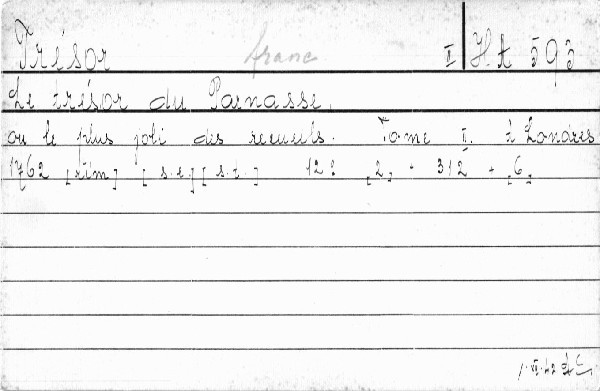 Trésor franc II Ht 593
Le trésor du Parnasse,
ou le plus joli des recueils. Tome II. à Londres
1762 [rim] [s.e.] [s.t.] 12º [2] + 312 + [6]
1.VI.42